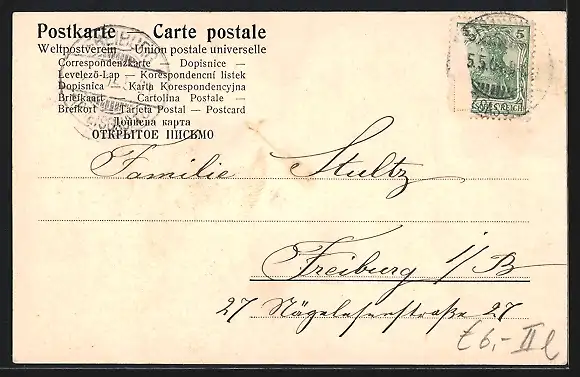 Postkarte — Carte postale
Weltpostverein — Union postale universelle
Correspondenzkarte — Dopisnice —
Levelező-Lap — Korespondencní listek
Dopisnica — Karta Korespondencyjna
Briefkaart — Cartolina Postale —
Brefkort — Tarjeta Postal — Postcard
Дописна карта
ОТКРЫТОЕ ПИСЬМО
5
5.5.0
REICH
Familie Stultz
Freiburg i/B
27 Nägeleseestraße 27